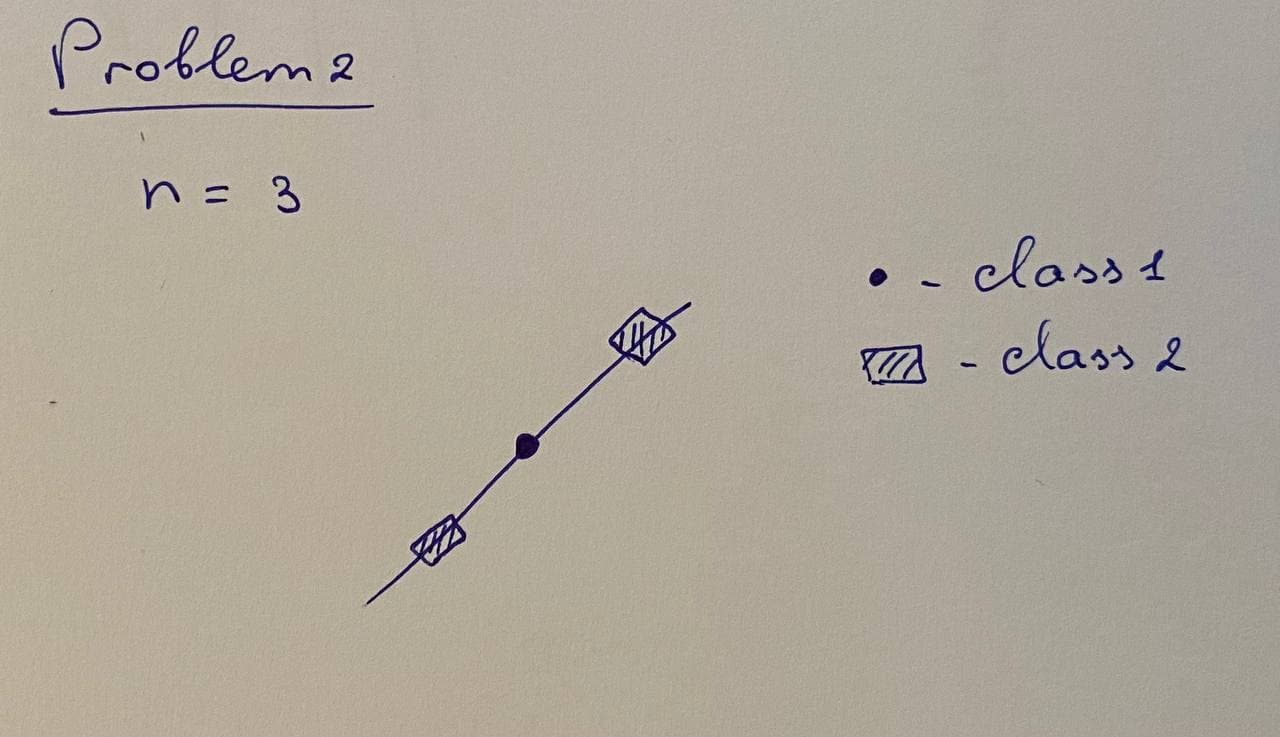 Problem 2
n = 3
- class 1
- class 2